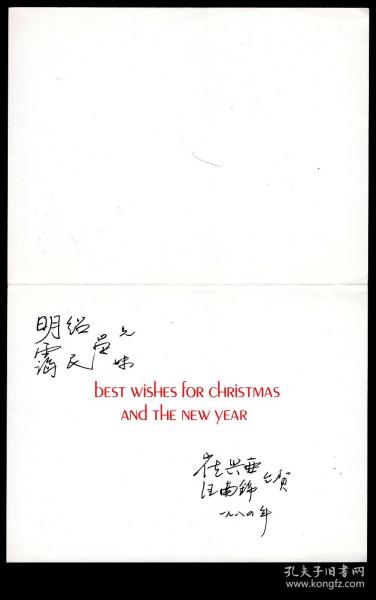 明绍兄
霭民妹
best wishes for christmas
and the new year
崔兴亚
汪南锦 仝贺
一九八〇年
孔夫子旧书网
www.kongfz.com